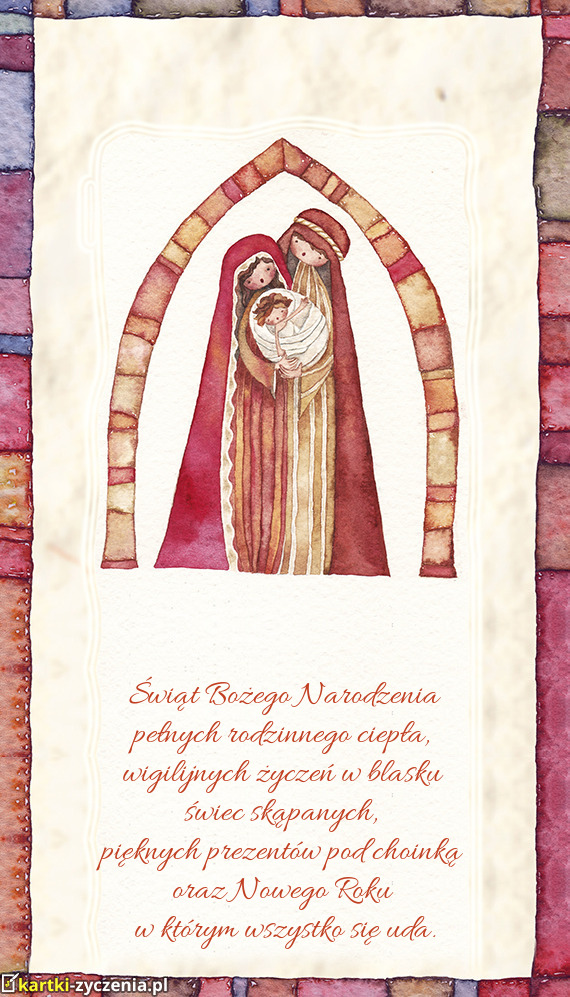 Świąt Bożego Narodzenia
pełnych rodzinnego ciepła,
wigilijnych życzeń w blasku
świec skąpanych,
pięknych prezentów pod choinką
oraz Nowego Roku
w którym wszystko się uda.
kartki-zyczenia.pl